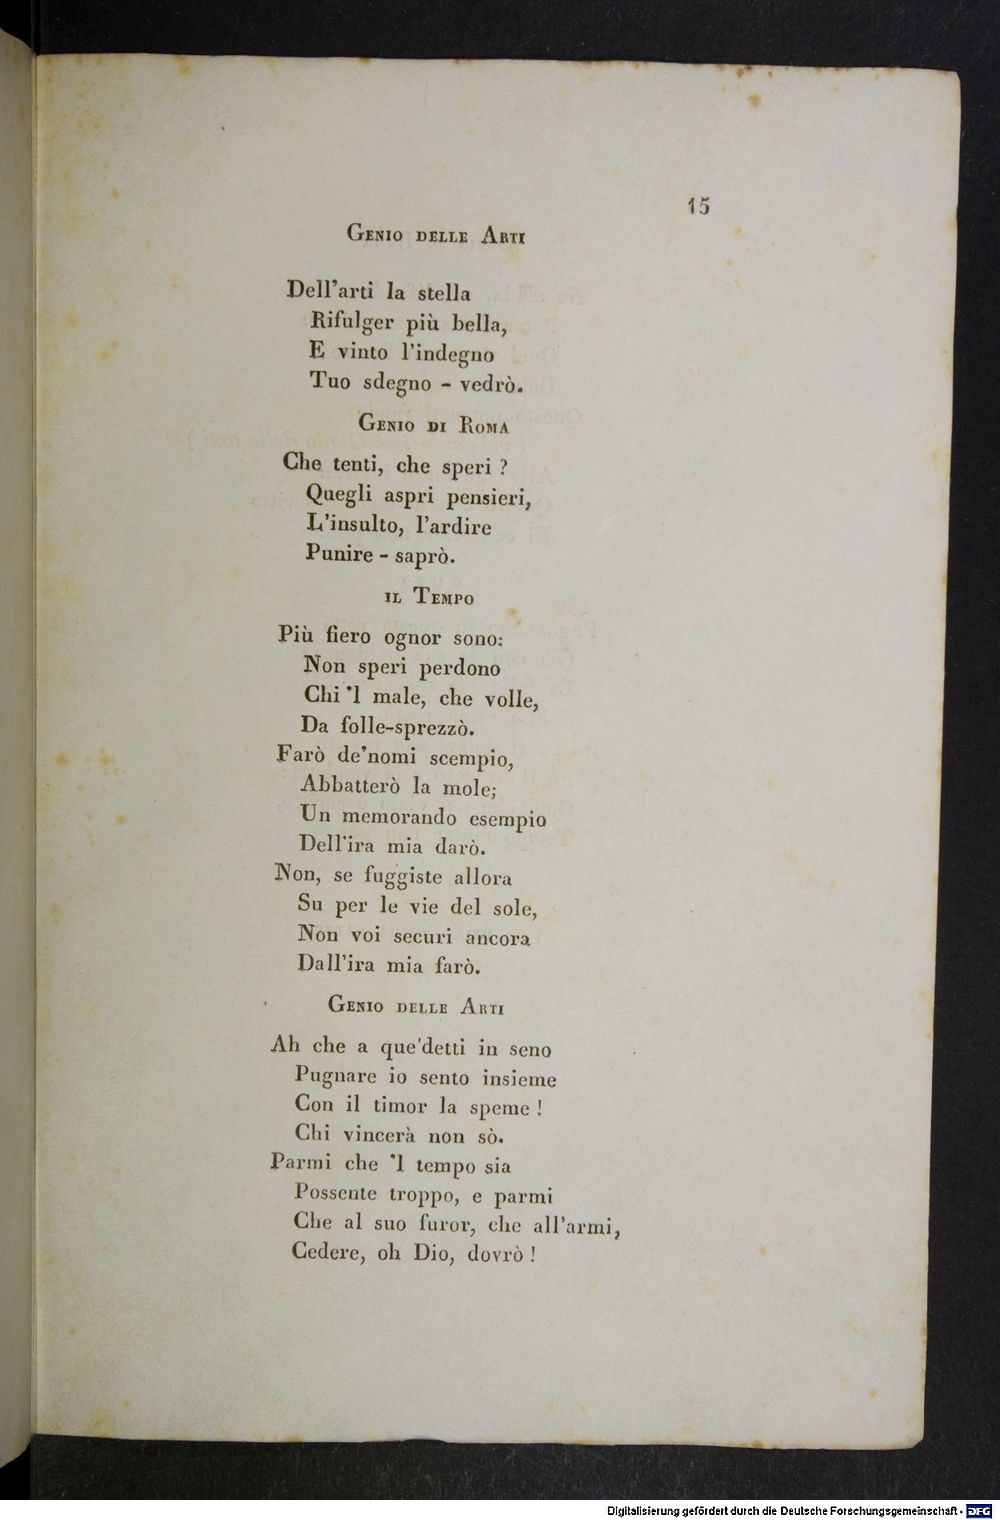 15
Genio delle Arti
Dell'arti la stella
Rifulger più bella,
E vinto l'indegno
Tuo sdegno - vedrò.
Genio di Roma
Che tenti, che speri ?
Quegli aspri pensieri,
L'insulto, l'ardire
Punire - saprò.
il Tempo
Più fiero ognor sono:
Non speri perdono
Chi 'l male, che volle,
Da folle-sprezzò.
Farò de'nomi scempio,
Abbatterò la mole;
Un memorando esempio
Dell'ira mia darò.
Non, se fuggiste allora
Su per le vie del sole,
Non voi securi ancora
Dall'ira mia farò.
Genio delle Arti
Ah che a que'detti in seno
Pugnare io sento insieme
Con il timor la speme !
Chi vincerà non sò.
Parmi che 'l tempo sia
Possente troppo, e parmi
Che al suo furor, che all'armi,
Cedere, oh Dio, dovrò !
Digitalisierung gefördert durch die Deutsche Forschungsgemeinschaft - DFG